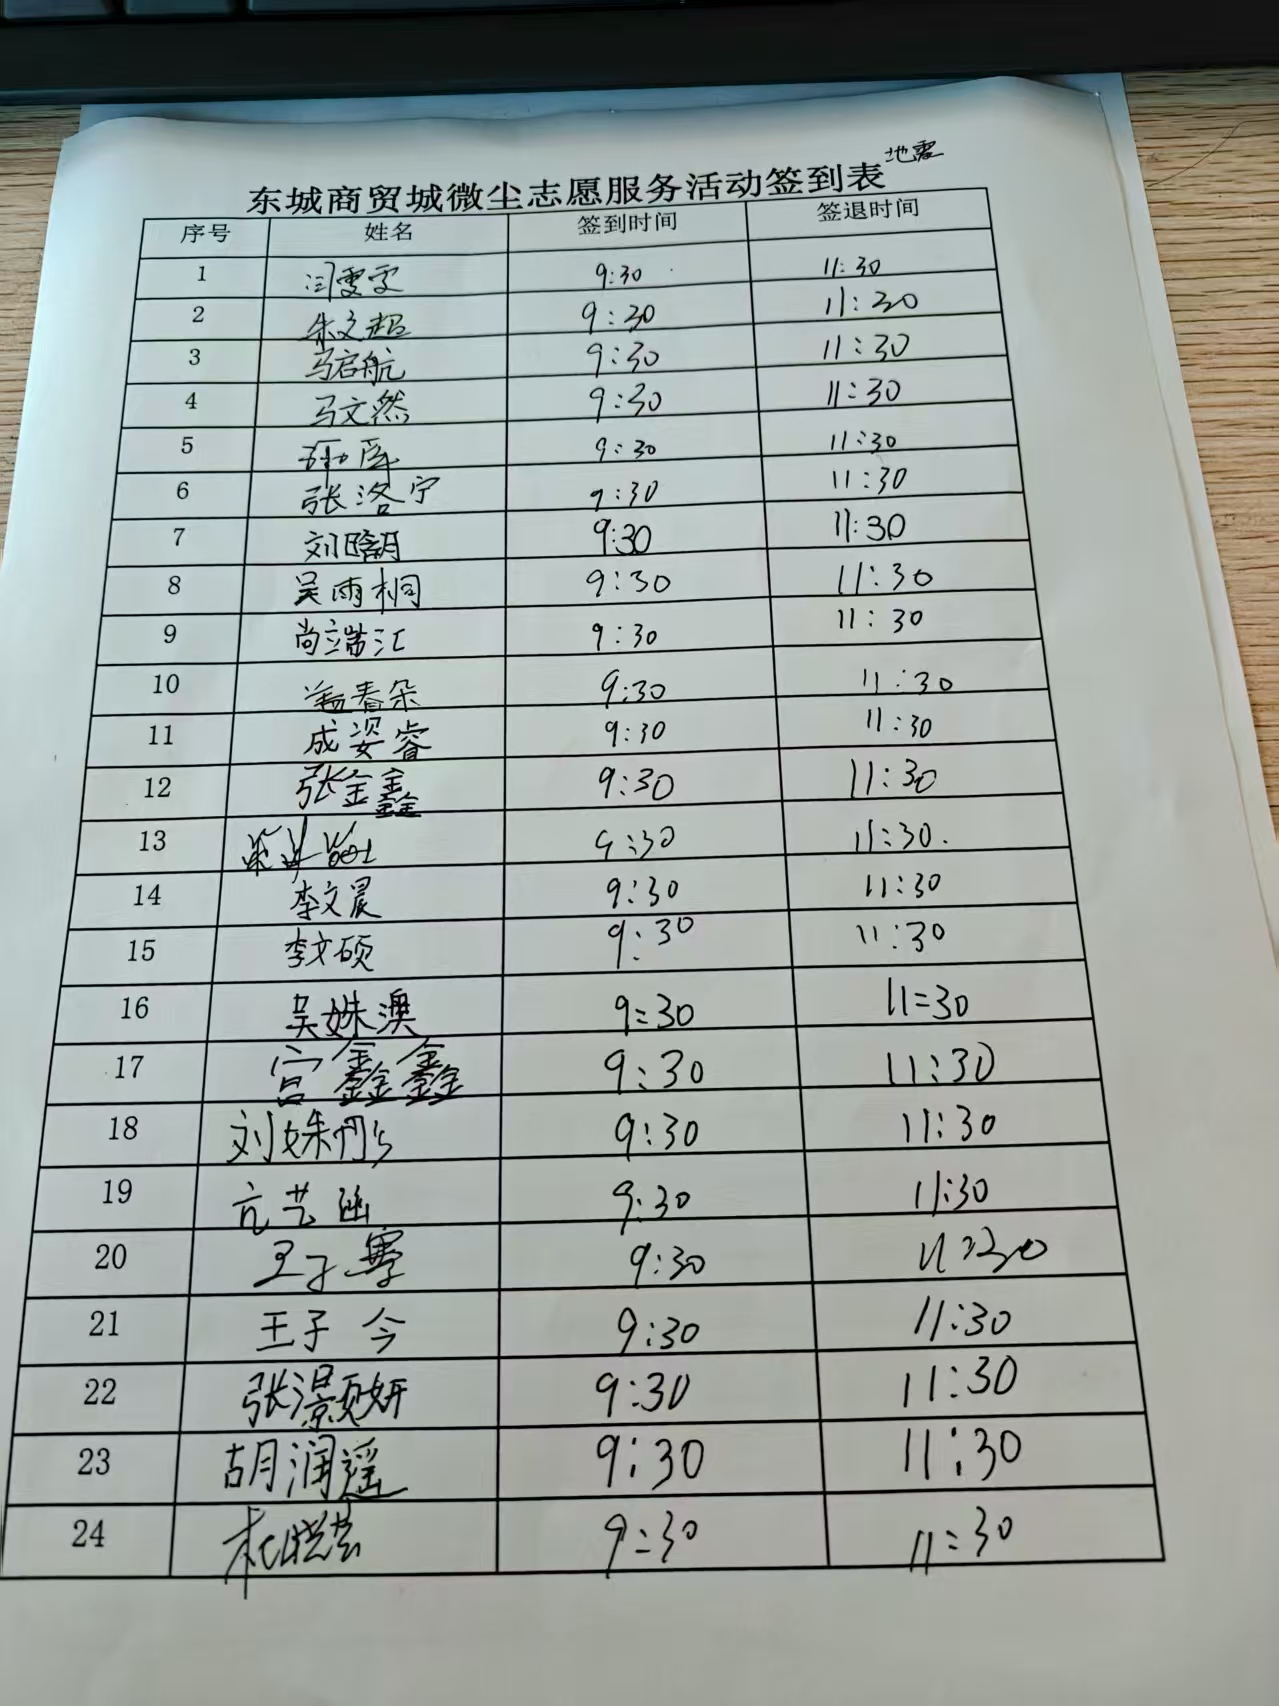 地震
东城商贸城微尘志愿服务活动签到表
序号 姓名 签到时间 签退时间
1 闫雯雯 9:30 11:30
2 朱文超 9:30 11:30
3 马启航 9:30 11:30
4 马文然 9:30 11:30
5 9:30 11:30
6 张洛宁 9:30 11:30
7 刘 9:30 11:30
8 吴雨桐 9:30 11:30
9 尚端汇 9:30 11:30
10 孟春朵 9:30 11:30
11 成姿睿 9:30 11:30
12 张金鑫 9:30 11:30
13 9:30 11:30.
14 李文晨 9:30 11:30
15 李文硕 9:30 11:30
16 吴姝澳 9:30 11:30
17 宫鑫鑫 9:30 11:30
18 刘姝彤 9:30 11:30
19 亢艺涵 9:30 11:30
20 王子骞 9:30 11:30
21 王子今 9:30 11:30
22 张灏妍 9:30 11:30
23 胡润遥 9:30 11:30
24 杜晓芸 9:30 11:30